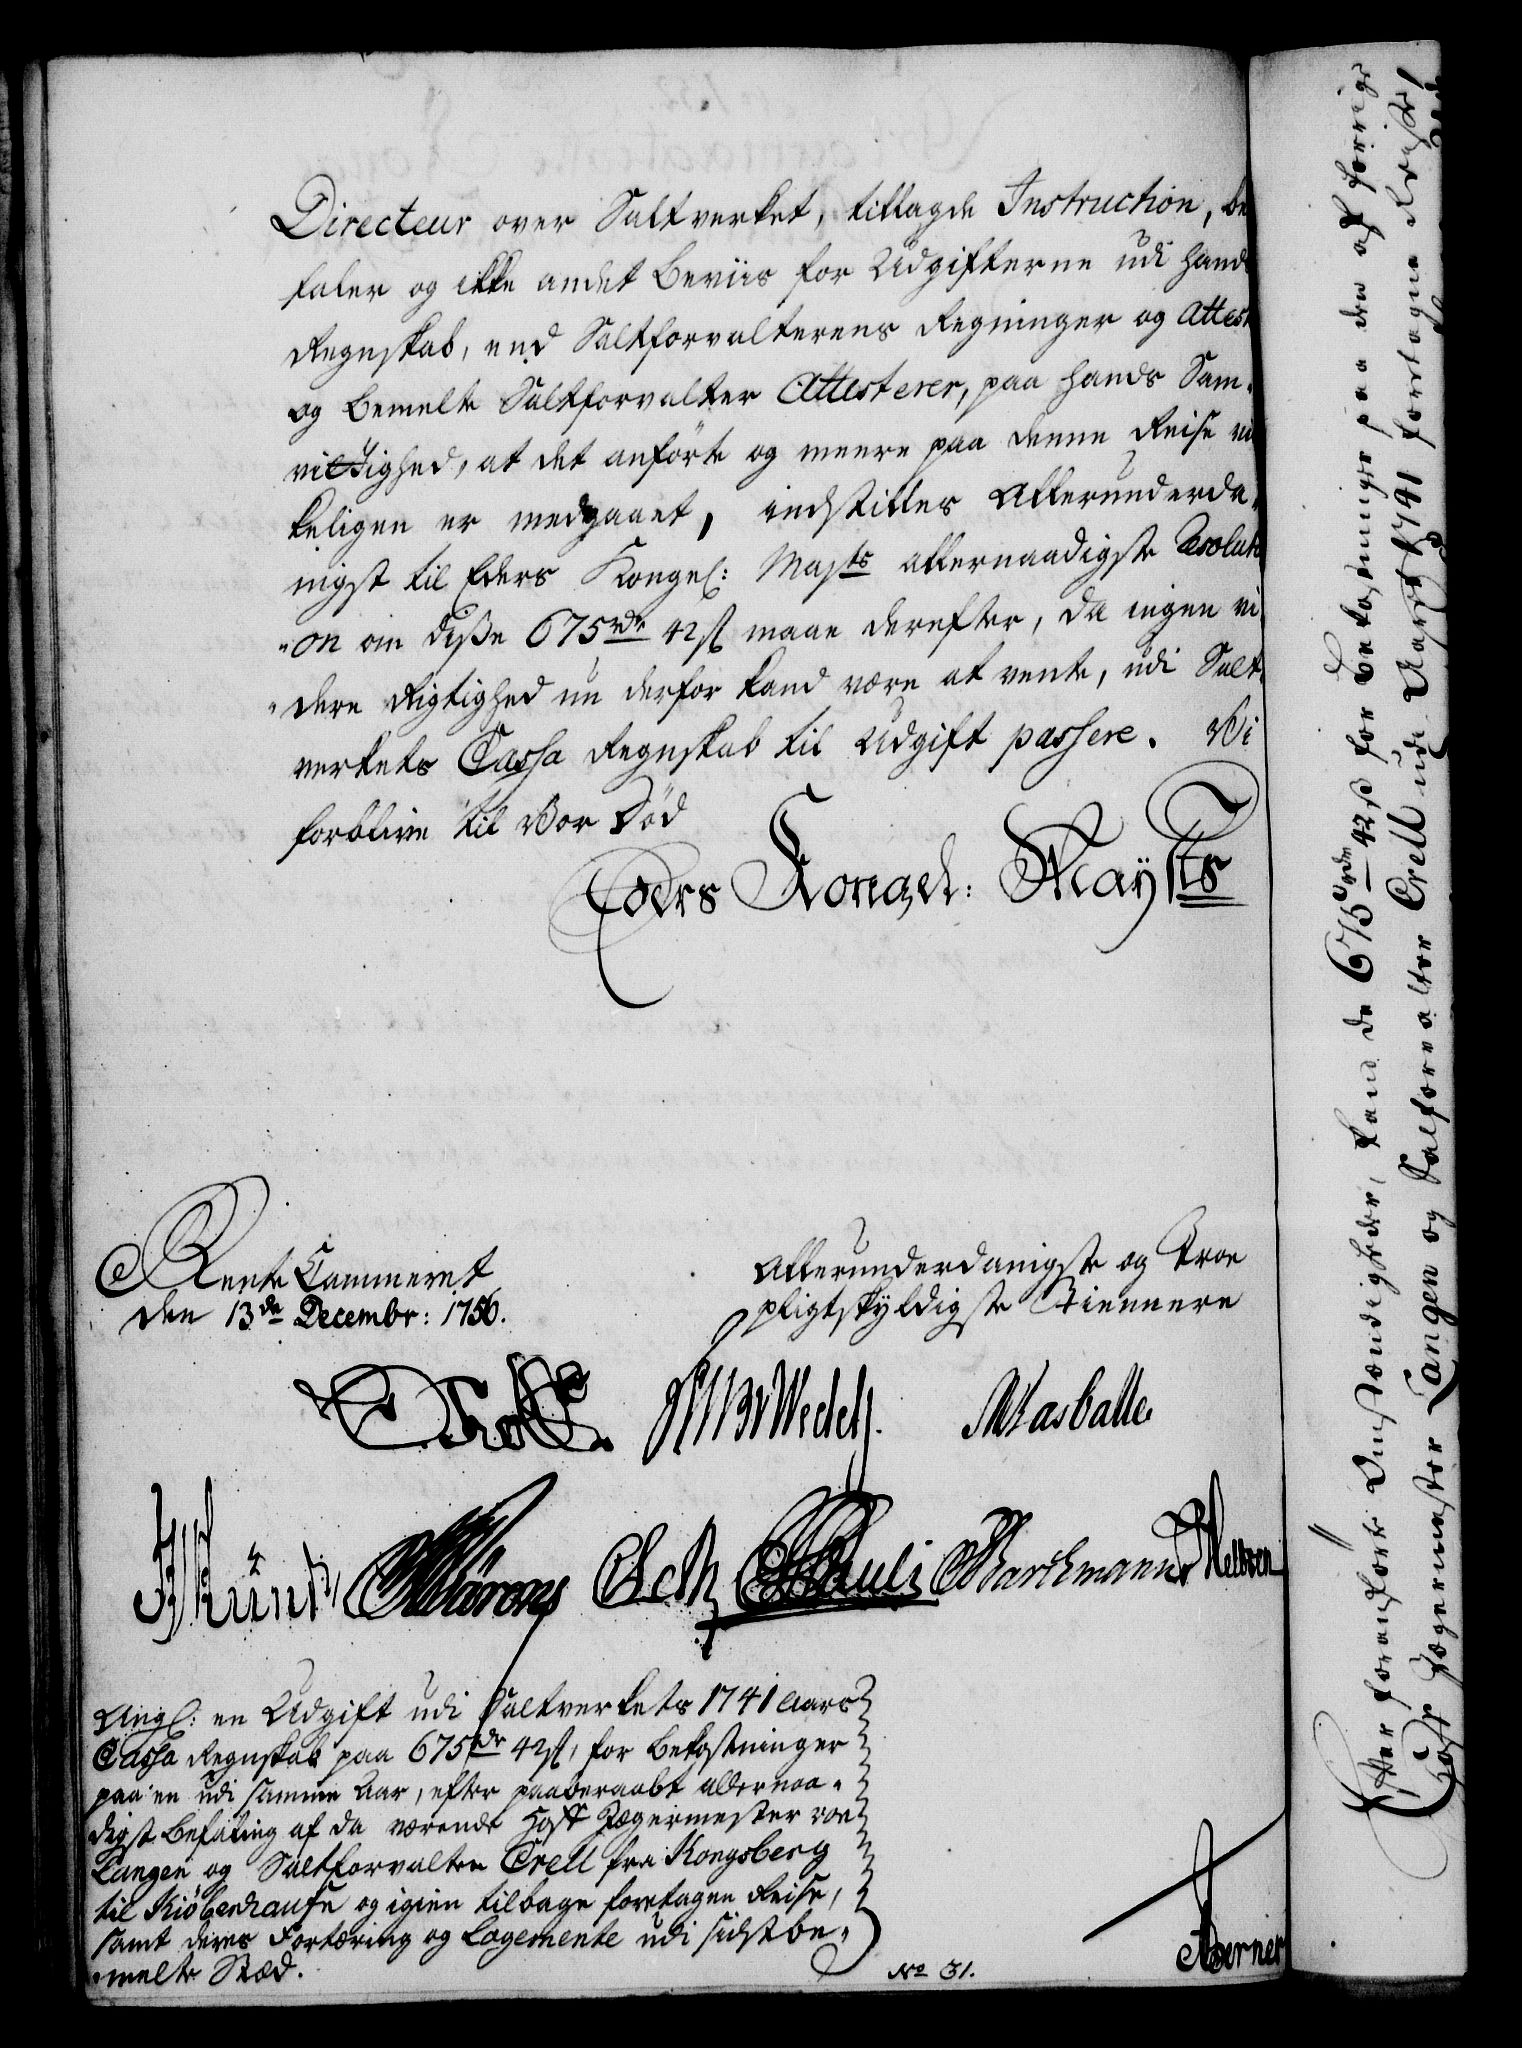 Directeur over Saltverket, tillagde Instruction, be
faler og ikke andet Beviis for Udgifterne udi hands
Regnskab, end Saltforvalterens Regninger og Attest
og bemelte Saltforvalter Attesterer, paa hands Sam-
vittighed, at det anførte og meere paa denne Reise vir
keligen er medgaaet, indstilles allerunderda-
nigst til Eders Kongel: Maÿts allernaadigste Resoluti
-on om diße 675 rdr 42 ß maae derefter, da ingen vi-
-dere Rigtighed nu derfor kand være at vente, udi Salt-
verkets Cassa Regnskab til Udgift passere. Vi
forblive til vor Død
Eders Kongel: Maÿts
Rente Cammeret
den 13de Decembr: 1756.
allerunderdanigste og troe
pligtskyldigste Tiennere
Wedell.
Masballe
Pauli
Barchmann
Ang: en Udgift udi Saltverkets 1741 Aars
Cassa Regnskab paa 675 rdr 42 ß, for bekostninger
paa en udi samme Aar, efter paaberaabt allernaa-
digst befaling af da værende Hoff Jægermester von
Langen og Saltforvalter Crell fra Kongsberg
til Kiöbenhaufn og igien tilbage foretagen Reise,
samt deres Fortæring og Logemente udi sidstbe-
-melte Stæd.
No 31.
Efter foranførte Omstændigheder, kand de 675 rdr 42 ß for bekostninger paa den af forrige
Hoff Jægermester Langen og Saltforvalter Crell udi Aaret 1741 foretagne Reise